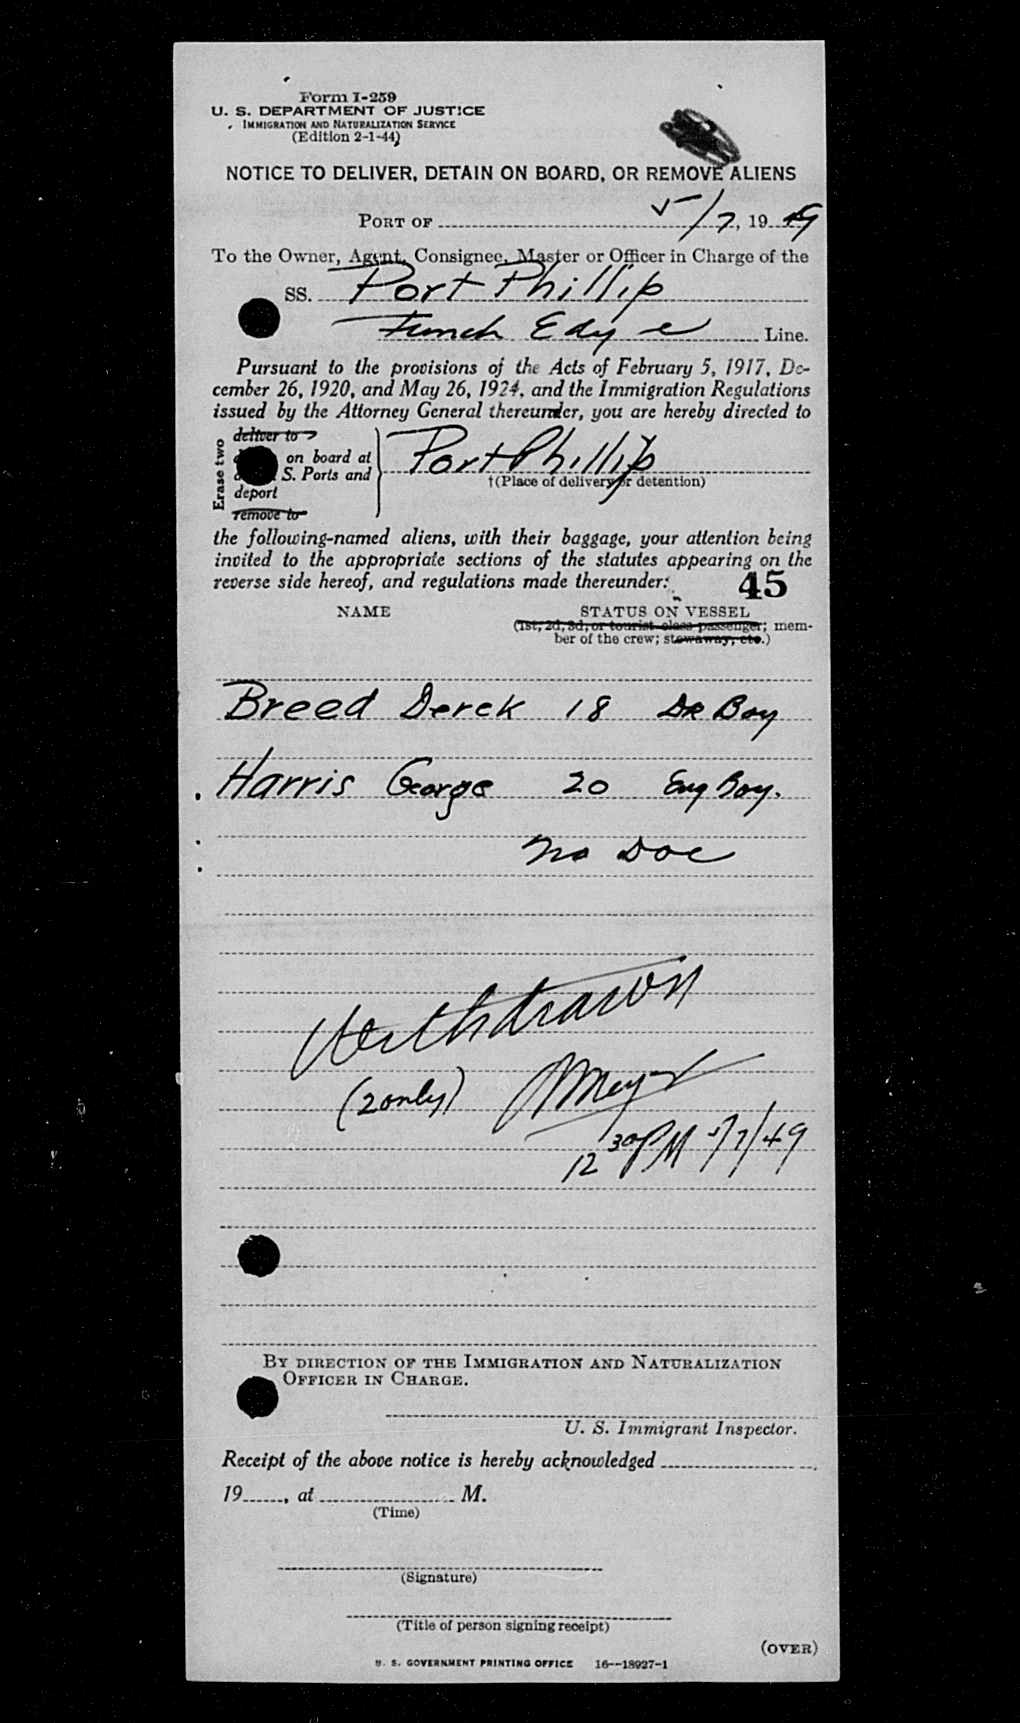 Form I-259
U. S. DEPARTMENT OF JUSTICE
IMMIGRATION AND NATURALIZATION SERVICE
(Edition 2-1-44)
NOTICE TO DELIVER, DETAIN ON BOARD, OR REMOVE ALIENS
PORT OF 5/7, 19 49
To the Owner, Agent, Consignee, Master or Officer in Charge of the
SS. Port Phillip
Funch Edye Line.
Pursuant to the provisions of the Acts of February 5, 1917, De-
cember 26, 1920, and May 26, 1924, and the Immigration Regulations
issued by the Attorney General thereunder, you are hereby directed to
Erase two
deliver to
on board at
S. Ports and
deport
remove to
Port Phillip
†(Place of delivery or detention)
the following-named aliens, with their baggage, your attention being
invited to the appropriate sections of the statutes appearing on the
reverse side hereof, and regulations made thereunder:
45
NAME STATUS ON VESSEL
(1st, 2d, 3d, or tourist class passenger; mem-
ber of the crew; stowaway, etc.)
Breed Derek 18 Dk Boy
Harris George 20 Eng Boy.
No Doc
Withdrawn
(2 only) Meyer
12 30 PM 5/7/49
BY DIRECTION OF THE IMMIGRATION AND NATURALIZATION
OFFICER IN CHARGE.
U. S. Immigrant Inspector.
Receipt of the above notice is hereby acknowledged
19, at M.
(Time)
(Signature)
(Title of person signing receipt)
(OVER)
U. S. GOVERNMENT PRINTING OFFICE 16—18927-1